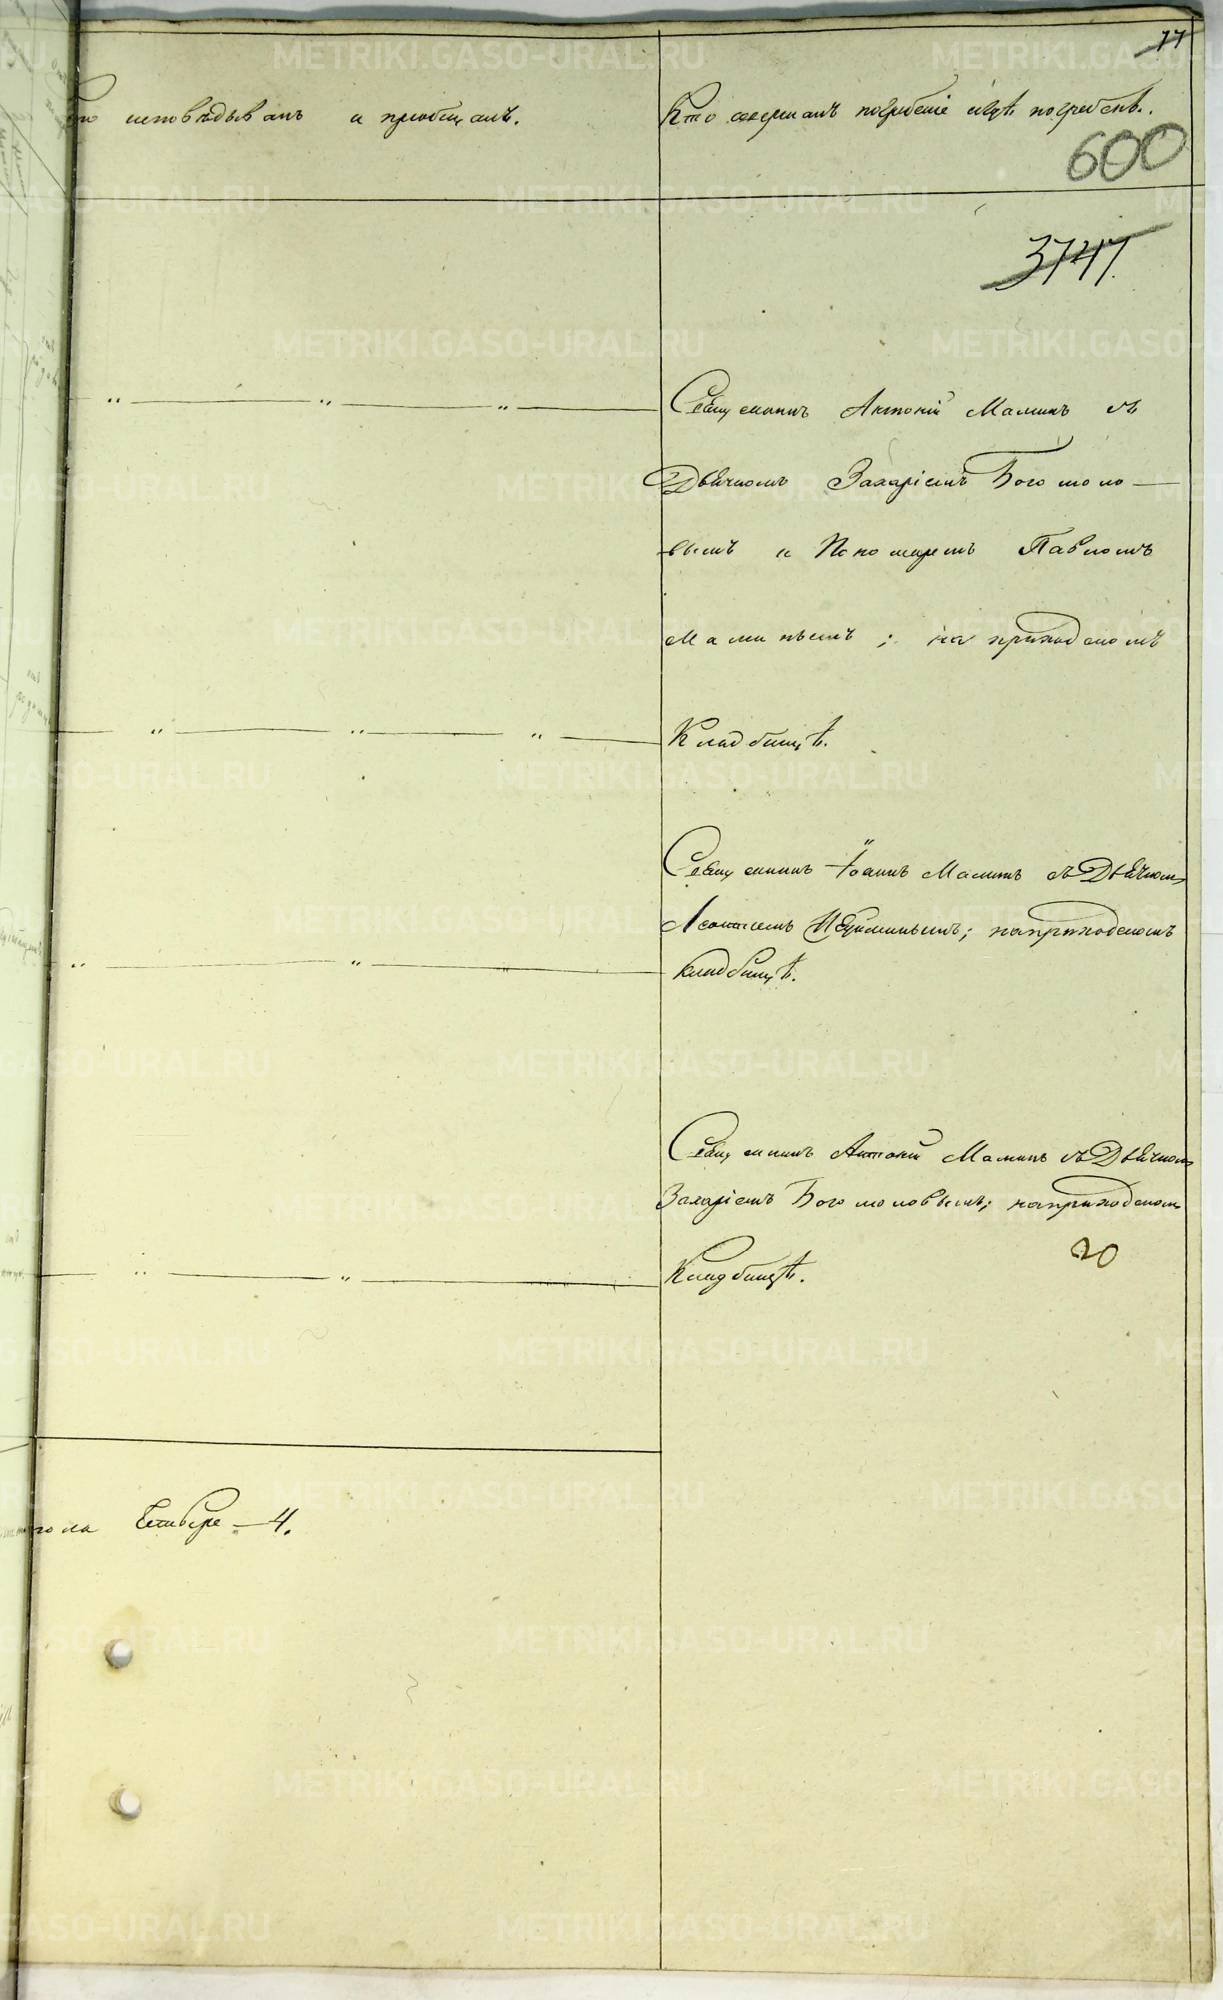 77
Кто исповѣдывалъ и пріобщалъ.
Кто совершалъ погребеніе и гдѣ погребены.
600
3747.
Священникъ Антоній Маминъ съ
Дьячкомъ Захаріемъ Богомоло-
вымъ и Пономаремъ Павломъ
Маминымъ; на приходскомъ
Кладбищѣ.
Священникъ Іоаннъ Маминъ съ Дьячкомъ
Леонтіемъ; на приходскомъ
кладбищѣ.
Священникъ Антоній Маминъ съ Дьячкомъ
Захаріемъ Богомоловымъ; на приходскомъ
20
Кладбищѣ.
пола 4.
METRIKI.GASO-URAL.RU